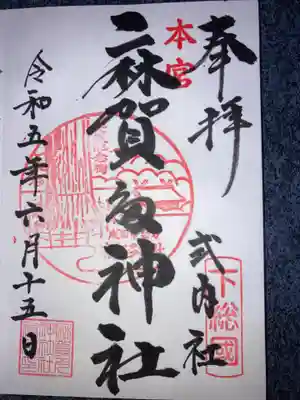 奉拝
式内社
下総國
本宮
麻賀多神社
令和五年六月十五日